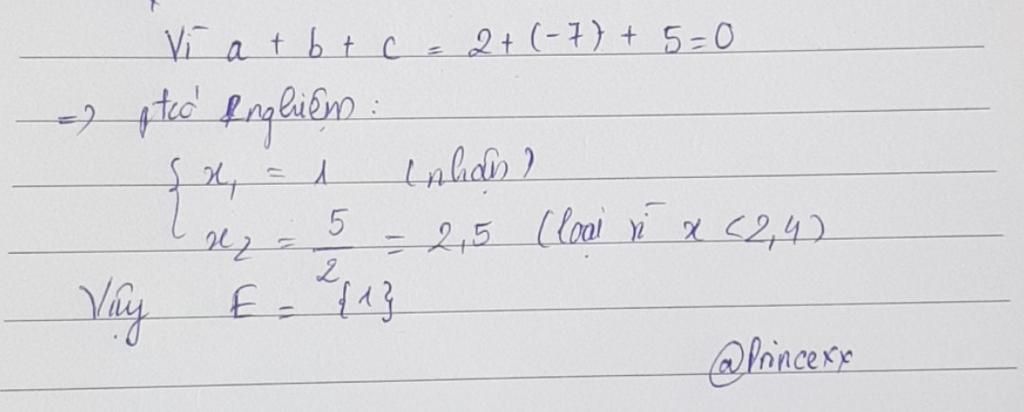 Vì a + b + c = 2 + (-7) + 5 = 0
=> pt có 2 nghiệm:
{ x₁ = 1 (nhận)
x₂ = 5/2 = 2,5 (loại vì x < 2,4)
Vậy E = {1}
@Princexx